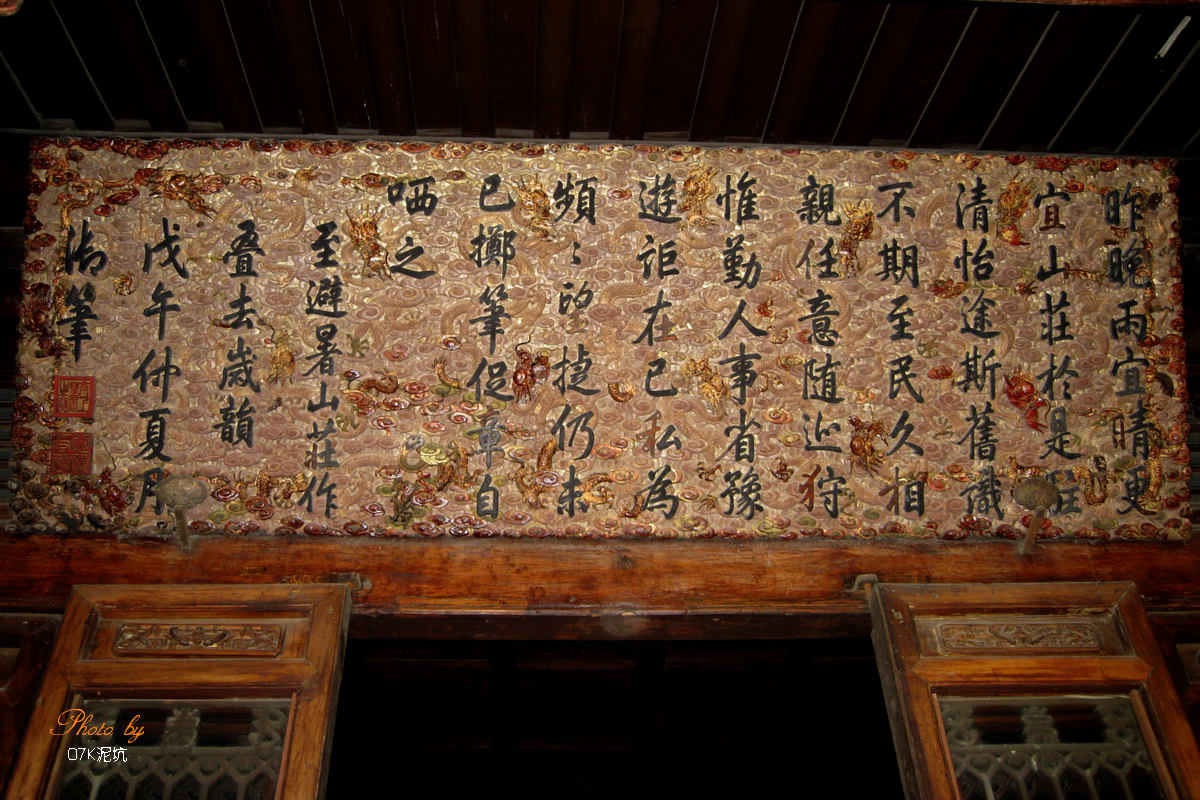 昨晚雨宜晴更
宜山莊於是駐
清怡途斯舊識
不期至民久相
親任意隨近狩
惟勤人事省豫
遊詎在已私為
頻〻望捷仍未
已擲筆促章自
哂之
至避暑山莊作
叠去歲韻
戊午仲夏月
御筆
Photo by
07K泥坑